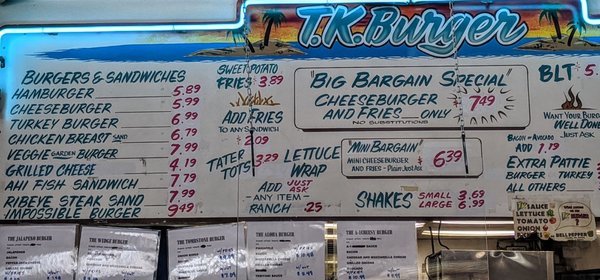 T.K. Burger
BURGERS & SANDWICHES
HAMBURGER 5.89
CHEESEBURGER 5.99
TURKEY BURGER 6.79
CHICKEN BREAST SAND 7.99
VEGGIE GARDEN BURGER
GRILLED CHEESE 4.19
AHI FISH SANDWICH 7.79
RIBEYE STEAK SAND 7.99
IMPOSSIBLE BURGER 9.49
SWEET POTATO
FRIES 3.89
ADD FRIES
TO ANY SANDWICH
2.09
TATER
TOTS 3.29
LETTUCE
WRAP
JUST
ASK
ADD
- ANY ITEM -
RANCH .25
"BIG BARGAIN SPECIAL"
CHEESEBURGER
AND FRIES ONLY $7.49
NO SUBSTITUTIONS
MINI BARGAIN!
MINI CHEESEBURGER
AND FRIES - PLAIN JUST ASK
$6.39
SHAKES SMALL 3.69
LARGE 6.99
BLT 5.
WANT YOUR
WELL DONE
JUST ASK
BACON OR AVOCADO
ADD 1.19
EXTRA PATTIE
BURGER TURKEY
ALL OTHERS
SAUCE
LETTUCE
TOMATO
ONION
BELL PEPPER
THE JALAPENO BURGER
THE WEDGE BURGER
THE TOMBSTONE BURGER
THE ALOHA BURGER